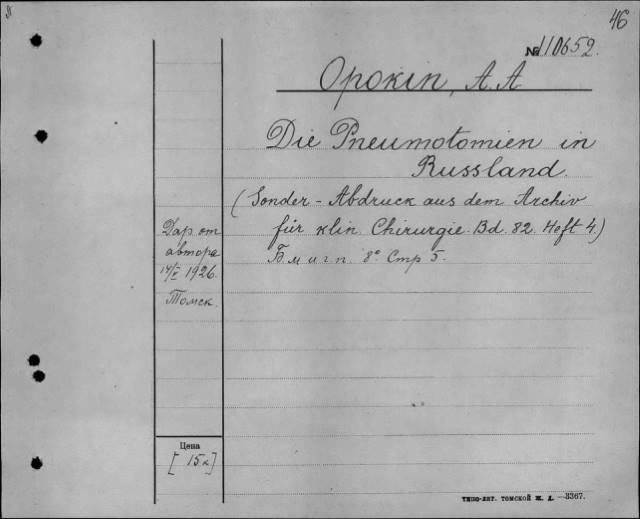 46
№ 110652.
Opokin, A. A
Die Pneumotomien in
Russland.
(Sonder - Abdruck aus dem Archiv
für klin. Chirurgie. Bd. 82. Heft 4.)
Б. м и г п. 8° Стр 5.
Дар. от
автора
14/I 1926.
Томск.
Цена
[15к]
ТИПО-ЛИТ. ТОМСКОЙ Ж. Д. —3367.